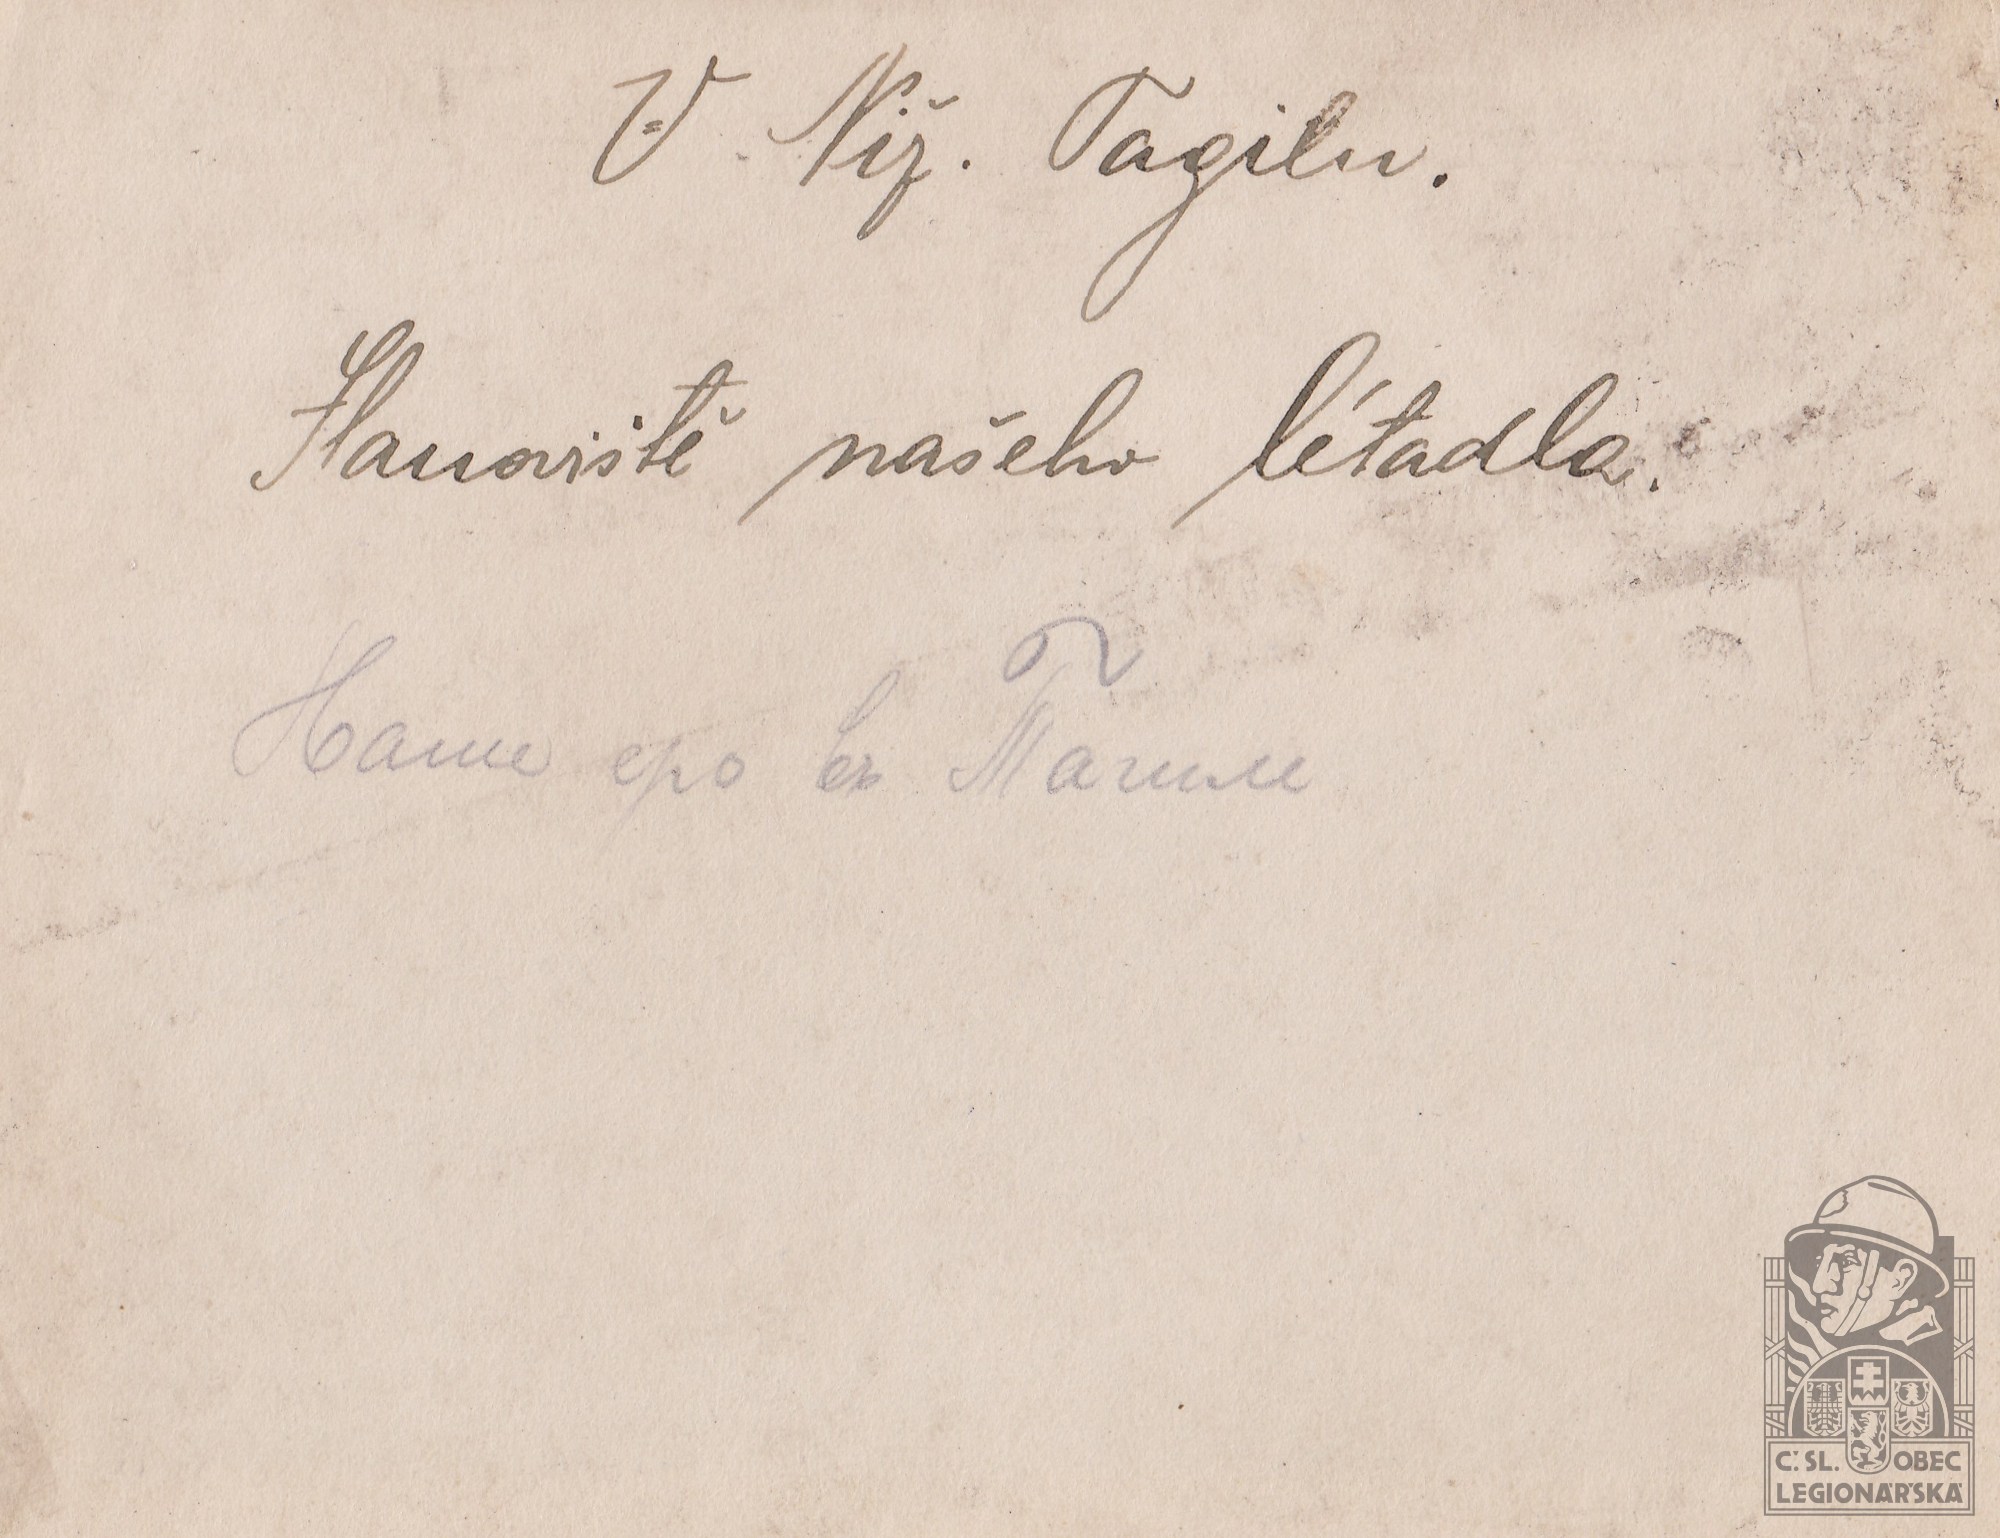 V Niž. Tagilu.
Stanoviště našeho létadla.
Наше еро въ Тагиле
Č. SL. OBEC
LEGIONÁŘSKÁ